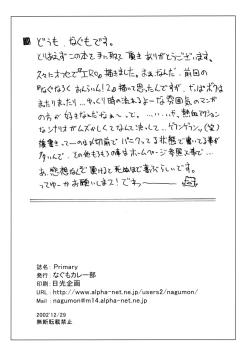 どうも、なぐもです。
とりあえずこの本を手に取って頂きありがとうございます。
久々にオフセで『エロ』描きました。まぁなんだ、前回の
『なぐなろくおんらいん!2』描いて思ったんですが、やっぱボクは
まったりまったり…ゆっくり時の流れるよーな雰囲気のマンガ
の方が好きなんだなぁ〜って。………で、熱血アクション
なシナリオがムズかしくてなんと決して…ゲフンゲフン。(笑)
後書きって一のは〆切前で パークってる状態で書いてる事が
多いんで、その他もろもろの事はホームページ参照で…
あ、感想など頂けると死ぬほど喜ぶらしいです。
ってゆーかお願いします!でわ〜
誌名: Primary
発行: なぐもカレー部
印刷: 日光企画
URL : http://www.alpha-net.ne.jp/users2/nagumon/
Mail : nagumon@m14.alpha-net.ne.jp
2002'12/29
無断転載禁止